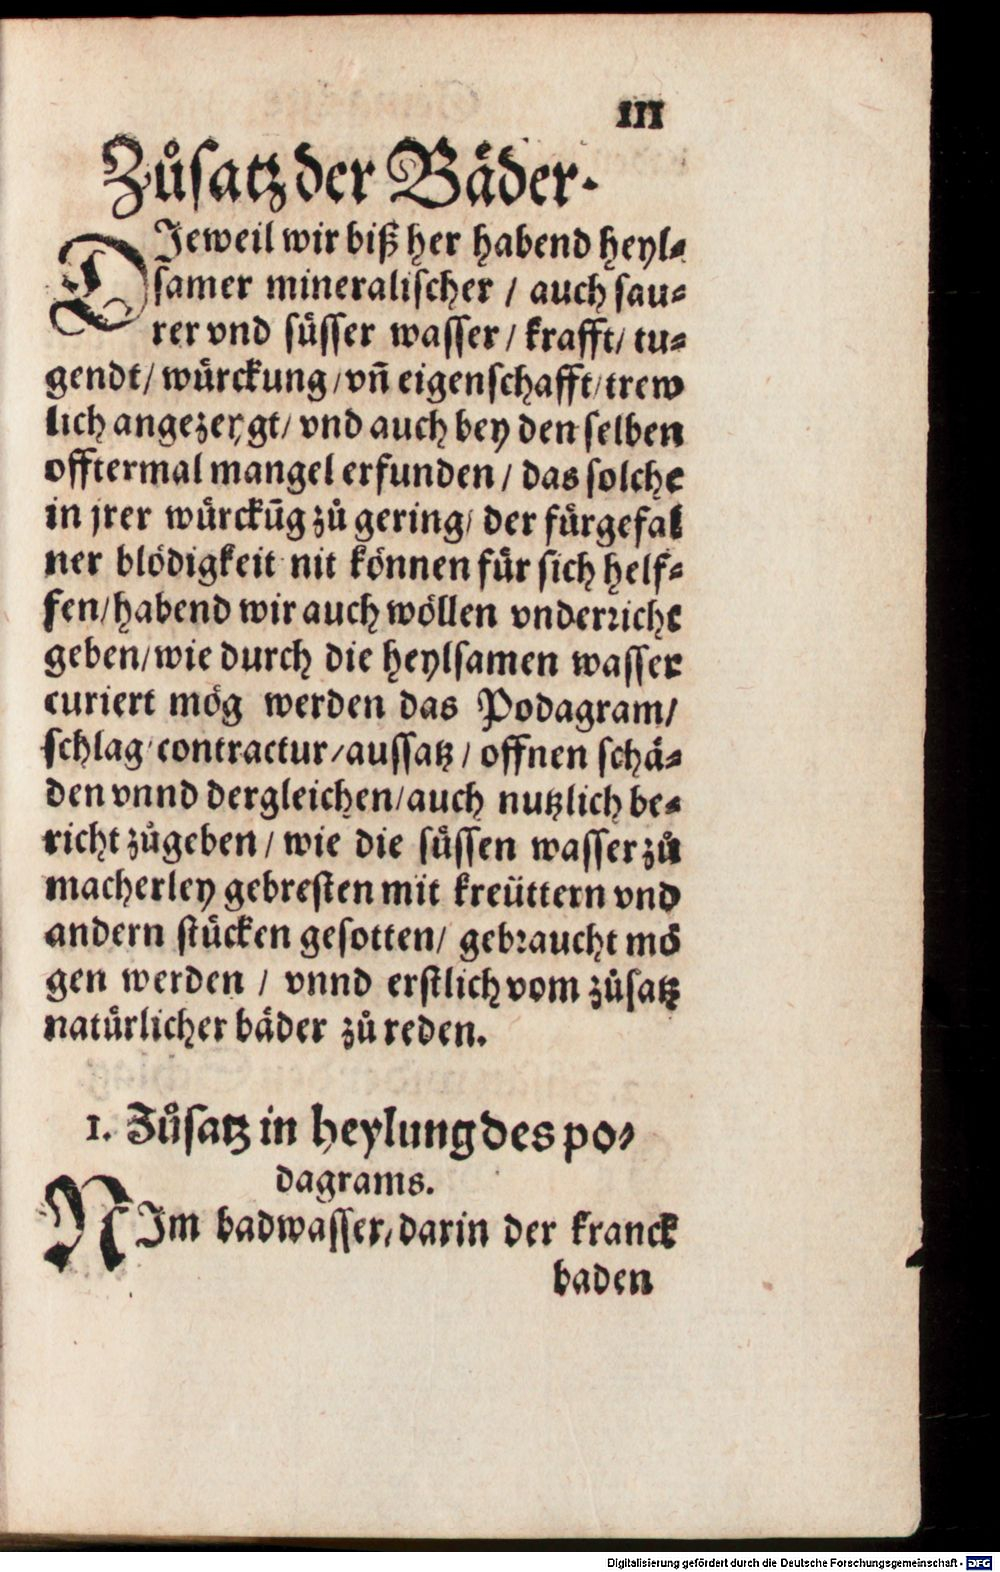 111
Zůsatz der Bäder.
DJeweil wir biß her habend heyl⸗
samer mineralischer / auch sau⸗
rer vnd süsser wasser / krafft / tu⸗
gendt / würckung / vn̄ eigenschafft / trew
lich angezeygt / vnd auch bey den selben
offtermal mangel erfunden / das solche
in jrer würckūg zů gering / der fürgefal
ner blödigkeit nit können für sich helf⸗
fen / habend wir auch wöllen vnderricht
geben / wie durch die heylsamen wasser
curiert mög werden das Podagram /
schlag / contractur / aussatz / offnen schä⸗
den vnnd dergleichen / auch nutzlich be⸗
richt zůgeben / wie die süssen wasser zů
macherley gebresten mit kreüttern vnd
andern stücken gesotten / gebraucht mö
gen werden / vnnd erstlich vom zůsatz
natürlicher bäder zů reden.
1. Zůsatz in heylung des po⸗
dagrams.
NJm badwasser / darin der kranck
baden
Digitalisierung gefördert durch die Deutsche Forschungsgemeinschaft - DFG